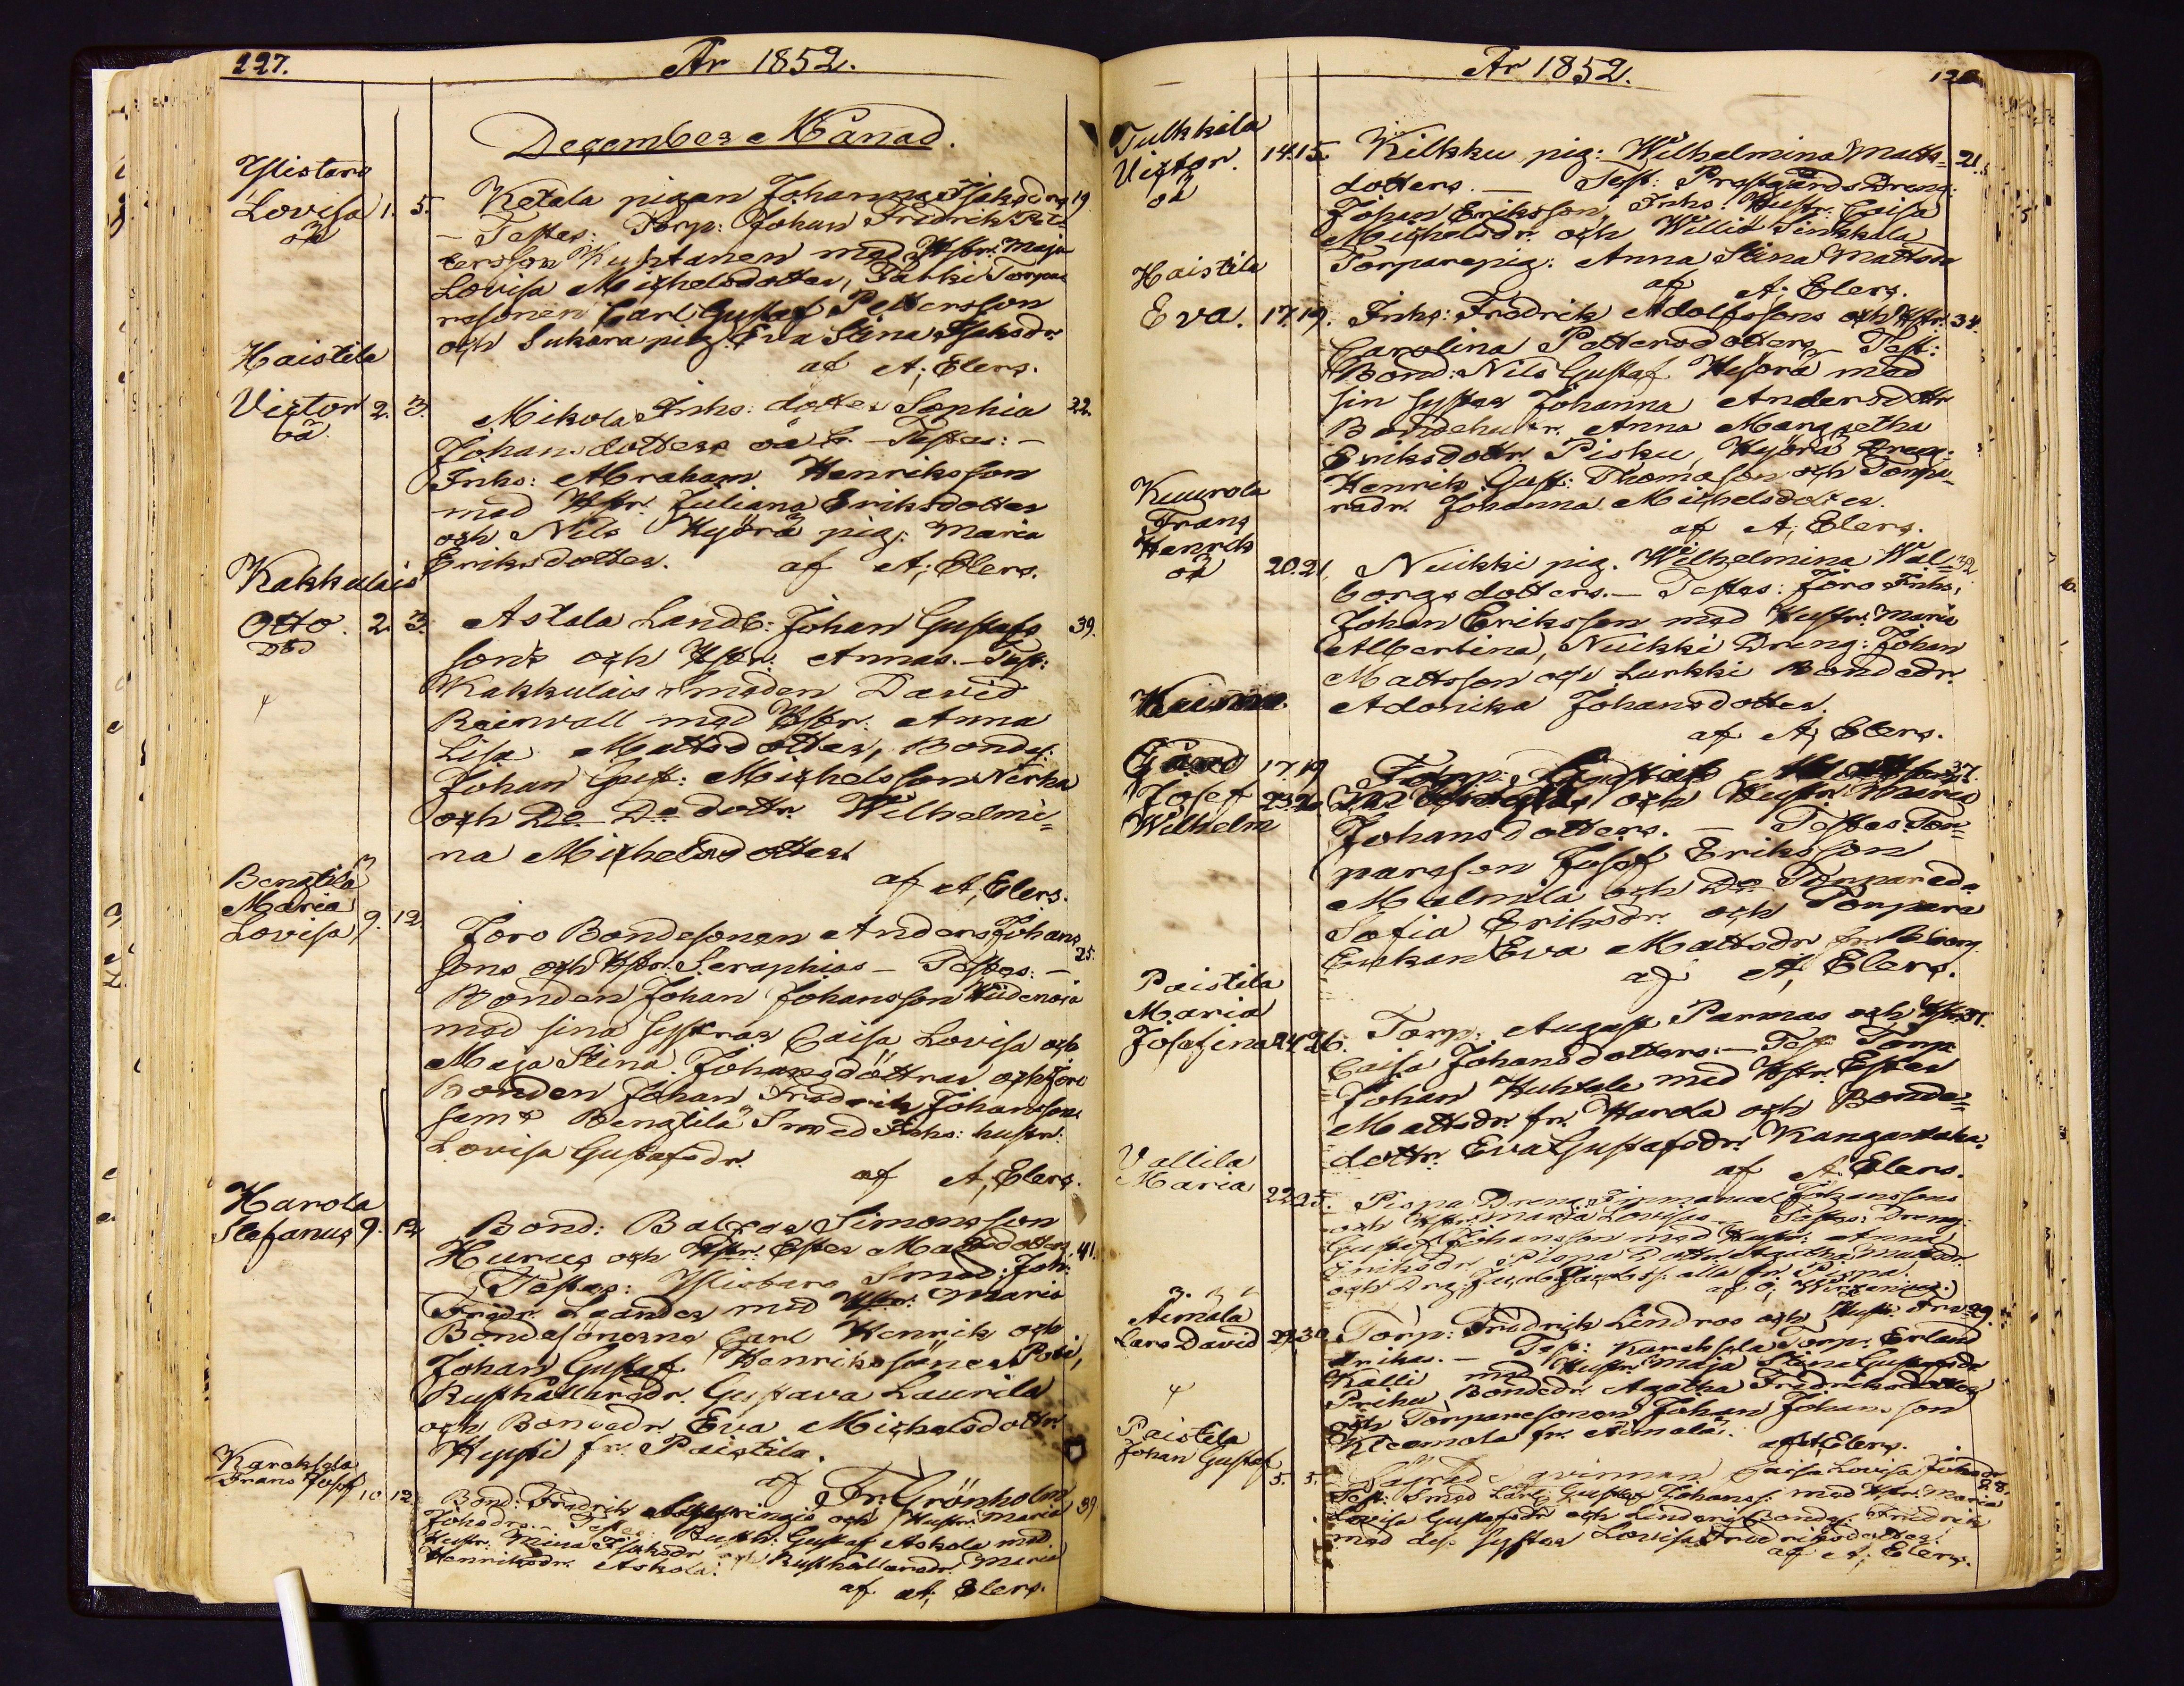 227.
År 1852.
December Månad.
Ylistaro
Lovisa 1. 5.
oä
Ketala pigan Johanna Isaksdrs 19
— Testes: Torp: Johan Fredrik Pet-
tersson Kuhtanen med Hstr. Maja
Lovisa Michelsdotter, Torpa-
resonen Carl Gustaf Pettersson
och Sukara pig: Eva Stina Isaksdr.
af A; Elers.
Haistila
Victor 2. 3.
oä.
Mikola Inhs: dotter Sophia 22.
Johansdotters oä b. — Testes: —
Inhs: Abraham Henriksson
med Hstr. Juliana Eriksdotter
och Nils Hyörä pig: Maria
Eriksdotter. af A; Elers.
Kakkulais
Otto. 2. 3.
Död
Astala Landb: Johan Gustafs 39.
sons och Hstr. Annas. — Test:
Kakkulais smeden David
Reinvall med Hstr. Anna
Lisa Mattsdotter, Bondes:
Johan Gust: Michelsson Nerha
och Do Do dottr. Wilhelmi=
na Michelsdotter.
af A; Elers.
Bengtilä
Maria
Lovisa 9. 12.
Joro Bondesonen Anders Johans
sons och Hstr. Seraphias — Testes: — 25.
Bonden Johan Johansson Hiidenoja
med sina systrar Caisa Lovisa och
Maja Stina Johansdöttrar och Joro
Bonden Johan Fredrik Johansson
samt Bengtilä Smed Inhs: hustr:
Lovisa Gustafsdr.
af A; Elers.
Harola
Stefanus 9. 12.
Bond: Balzar Simonsson
Hurus och Hstr. Ester Mattsdotters. 41.
Testes: Ylistaro Smed: Joh:
Fredr. Lgander med Hstr. Maria
Bondesönerna Carl Henrik och
Johan Gustaf Henrikssöner Poti,
Rusthållaredr. Gustava Laurila
och Bondedr. Eva Michelsdottr.
Hyppi fr. Paistila.
af Fr: Grönholm
Karoksela
Frans Josef 10 12.
Bond: Fredrik och Hustr. Maria 39
Johsdrs. — Testes: Rusth: Gustaf Askola med
Hustr. Mina Isaksdr. och Rusthållaredr. Maria
Henriksdr. Askola.
af A; Elers.
År 1852. 128
Tulkkila
Victor. 14. 15.
oä
Kilkku pig: Wilhelmina Matts- 21.
dotters. — Test: Prestgårds Dreng:
Johan Eriksson, Inhs: Hustr: Caisa
Michelsdr. och Willio Sinkkala
Torparepig: Anna Stina Mattsdr
af A; Elers.
Haistila
Eva. 17. 19.
Inhs: Fredrik Adolfssons och Hstr. 34.
Carolina Pettersdotters — Test:
Bond: Nils Gustaf Hyörä med
sin syster Johanna Andersdottr
Bondehustr. Anna Margretha
Eriksdottr Pisku, Hyörä Dreng:
Henrik Gust: Thomasson och Torpa-
redr. Johanna Michelsdotter.
af A; Elers.
Kuurola
Frans
Henrik
oä 20. 21.
Nuikki pig. Wilhelmina Wal= 32
borgsdotters. — Testes: Joro Inhs:
Johan Eriksson med Hustr: Maria
Albertina, Nuikki Dreng: Johan
Mattsson och Lurkki Bondedr.
Adonika Johansdotter.
af A; Elers.
Josef
Wilhelm 17. 19
och Hustr. Maria 37.
Johansdotters. — Testes: Tor-
pareson Josef Eriksson
Malmila och Do Torparedr.
Sofia Eriksdr. och Torpare
Enkan Eva Mattsdr. fr. Björn
af A; Elers.
Paistila
Maria
Josefina 24. 26.
Torp: August Parmas och Hstr. 31.
Caisa Johansdotters. — Test: Torp:
Johan Huhtala med Hstr. Ester
Mattsdr. fr. Harola och Bonde=
dottr. Eva Gustafsdr. Kangasmaka.
af A. Elers.
Vallila
Maria 22. 25.
Pispa Dreng: Immanuel Johanssons
och Hstr. Maria Lovisas — Testes: Dreng:
Gustaf Johansson med Hustr: Anna
Eriksdr. Pispa Dottr Agatha Mattsdr.
och Drg: alla fr. Pispa
Aimala
Lars David 27. 30
Torp: Fredrik Lindros och Hustr. Fred= 29.
rikas. — Test: Karoksela Torp: Erland
Kalli med Hustr. Maja Stina Gustafsdr.
Prihu Bondedr. Agatha Fredriksdotter
och Torparesonen Johan Johansson
Kleemola fr. Aimalä.
af A; Elers.
Paistila
Johan Gustaf 5. 5.
Caisa Lovisa Johsdr 28.
Test: Smed Carl Gustaf Johanss: med Hstr. Maria
Lovisa Gustafsdr. och Lindari Bondes: Fredrik
med des syster Lovisa Fredriksdotter.
af A; Elers.